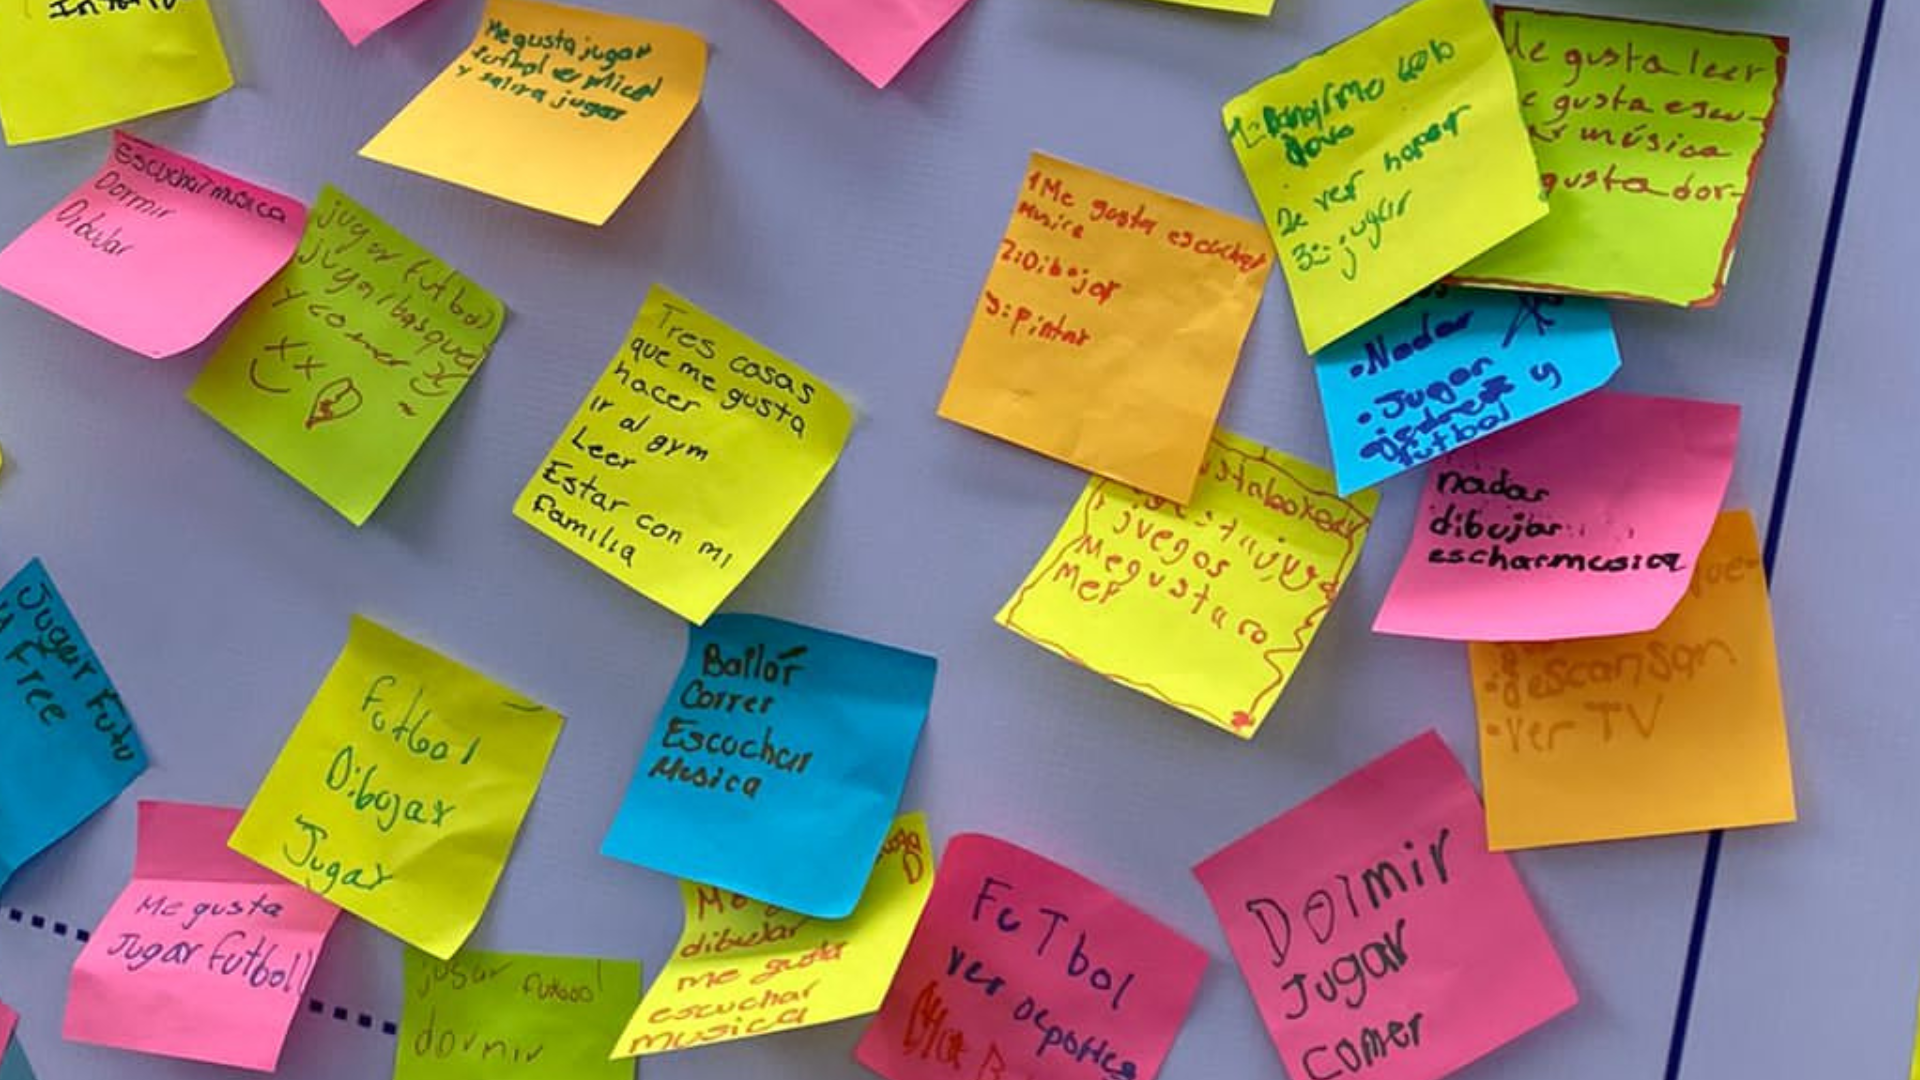 Me gusta jugar
futbol
y salir a jugar
Escuchar musica
Dormir
Dibujar
jugar futbol
jugar basquet
y comer
Tres casas
que me gusta
hacer
ir al gym
Leer
Estar con mi
familia
1 Me gusta escuchar
Musica
2: Dibujar
3: pintar
2- ver
3- jugar
Me gusta leer
gusta escu-
ar música
gusta dor-
• Nadar
• Jugar
ajedrez y
futbol
nadar
dibujar
escharmusica
juegos
Me gusta co
mer
que-
descansan
• Ver TV
Jugar
Free
Futbol
Dibujar
Jugar
Bailar
Correr
Escuchar
Musica
Me gusta
Jugar futbol
jugar futbol
dormir
dibujar
me gusta
escuchar
musica
FuTbol
ver deportes
Dormir
Jugar
comer